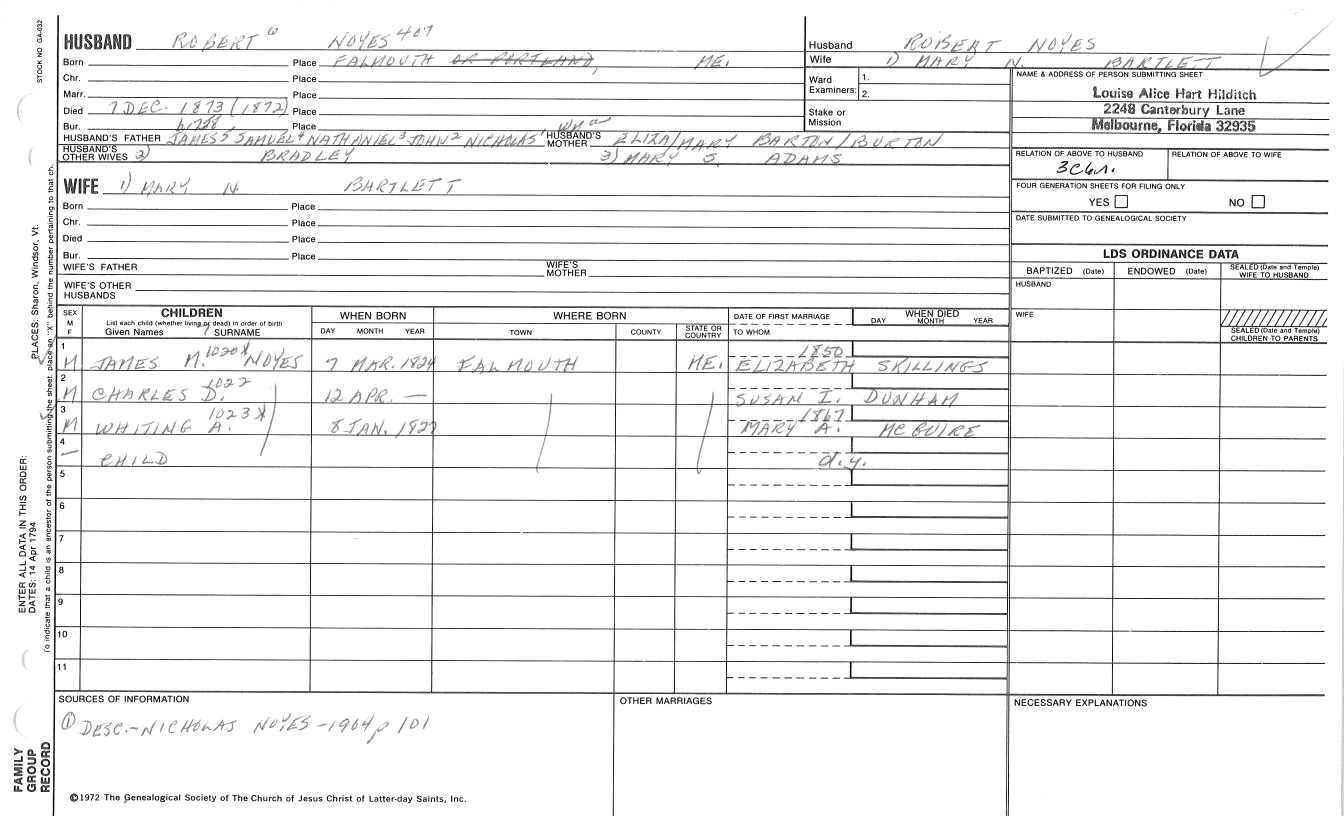 STOCK NO. GA-032
HUSBAND ROBERT 6 NOYES 407
Born Place FALMOUTH OR PORTLAND, ME.
Chr. Place
Marr. Place
Died 7 DEC. 1873 (1872) Place
Bur. Place
HUSBAND'S FATHER JAMES 5 SAMUEL 4 NATHANIEL 3 JOHN 2 NICHOLAS 1 HUSBAND'S MOTHER ELIZA/MARY BARTON/BURTON
HUSBAND'S OTHER WIVES 2) BRADLEY 3) MARY S. ADAMS
Husband ROBERT NOYES
Wife 1) MARY N. BARTLETT
Ward Examiners: 1.
2.
Stake or Mission
NAME & ADDRESS OF PERSON SUBMITTING SHEET
Louise Alice Hart Hilditch
2248 Canterbury Lane
Melbourne, Florida 32935
RELATION OF ABOVE TO HUSBAND RELATION OF ABOVE TO WIFE
3C6r.
FOUR GENERATION SHEETS FOR FILING ONLY
YES NO
DATE SUBMITTED TO GENEALOGICAL SOCIETY
WIFE 1) MARY N. BARTLETT
Born Place
Chr. Place
Died Place
Bur. Place
WIFE'S FATHER WIFE'S MOTHER
WIFE'S OTHER HUSBANDS
LDS ORDINANCE DATA
BAPTIZED (Date) ENDOWED (Date) SEALED (Date and Temple) WIFE TO HUSBAND
HUSBAND
WIFE
SEALED (Date and Temple) CHILDREN TO PARENTS
SEX M F CHILDREN WHEN BORN WHERE BORN DATE OF FIRST MARRIAGE WHEN DIED
List each child (whether living or dead) in order of birth
Given Names SURNAME DAY MONTH YEAR TOWN COUNTY STATE OR COUNTRY TO WHOM DAY MONTH YEAR
1 1020 X 1850
M JAMES M. NOYES 7 MAR. 1824 FALMOUTH ME. ELIZABETH SKILLINGS
2 1022
M CHARLES D. 12 APR. — SUSAN I. DUNHAM
3 1023 X 1867
M WHITING A. 8 JAN. 1827 MARY A. MCGUIRE
4
— CHILD d.y.
5
6
7
8
9
10
11
SOURCES OF INFORMATION OTHER MARRIAGES NECESSARY EXPLANATIONS
① DESC.-NICHOLAS NOYES-1904 p 101
©1972 The Genealogical Society of The Church of Jesus Christ of Latter-day Saints, Inc.
PLACES: Sharon, Windsor, Vt.
To indicate that a child is an ancestor of the person submitting the sheet, place an "X" behind the number pertaining to that ch.
ENTER ALL DATA IN THIS ORDER:
DATES: 14 Apr 1794
FAMILY GROUP RECORD